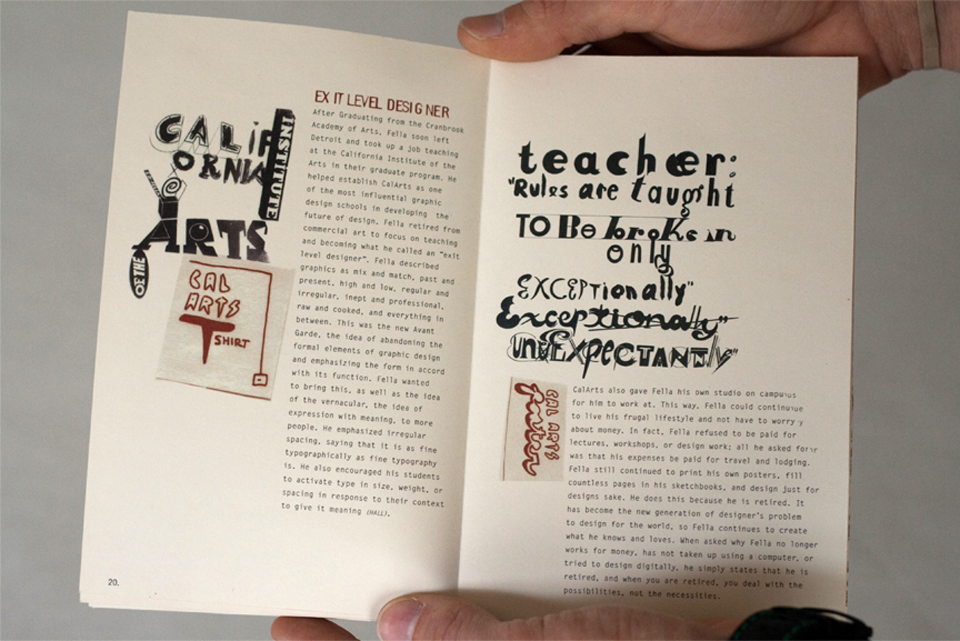 CALIF
ORNIA
INSTITUTE
OF THE
ARTS
CAL
ARTS
T
SHIRT
EXIT LEVEL DESIGNER
After Graduating from the Cranbrook
Academy of Arts, Fella soon left
Detroit and took up a job teaching
at the California Institute of the
Arts in their graduate program. He
helped establish CalArts as one
of the most influential graphic
design schools in developing the
future of design. Fella retired from
commercial art to focus on teaching
and becoming what he called an "exit
level designer". Fella described
graphics as mix and match, past and
present, high and low, regular and
irregular, inept and professional,
raw and cooked, and everything in
between. This was the new Avant
Garde, the idea of abandoning the
formal elements of graphic design
and emphasizing the form in accord
with its function. Fella wanted
to bring this, as well as the idea
of the vernacular, the idea of
expression with meaning, to more
people. He emphasized irregular
spacing, saying that it is as fine
typographically as fine typography
is. He also encouraged his students
to activate type in size, weight, or
spacing in response to their context
to give it meaning (HALL).
20.
teacher:
"Rules are taught
TO Be broken
only
EXCEPTionally"
Exceptionally"
unExpectantly"
CAL ARTS
CalArts also gave Fella his own studio on campus
for him to work at. This way, Fella could continue
to live his frugal lifestyle and not have to worry
about money. In fact, Fella refused to be paid for
lectures, workshops, or design work; all he asked for
was that his expenses be paid for travel and lodging.
Fella still continued to print his own posters, fill
countless pages in his sketchbooks, and design just for
designs sake. He does this because he is retired. It
has become the new generation of designer's problem
to design for the world, so Fella continues to create
what he knows and loves. When asked why Fella no longer
works for money, has not taken up using a computer, or
tried to design digitally, he simply states that he is
retired, and when you are retired, you deal with the
possibilities, not the necessities.